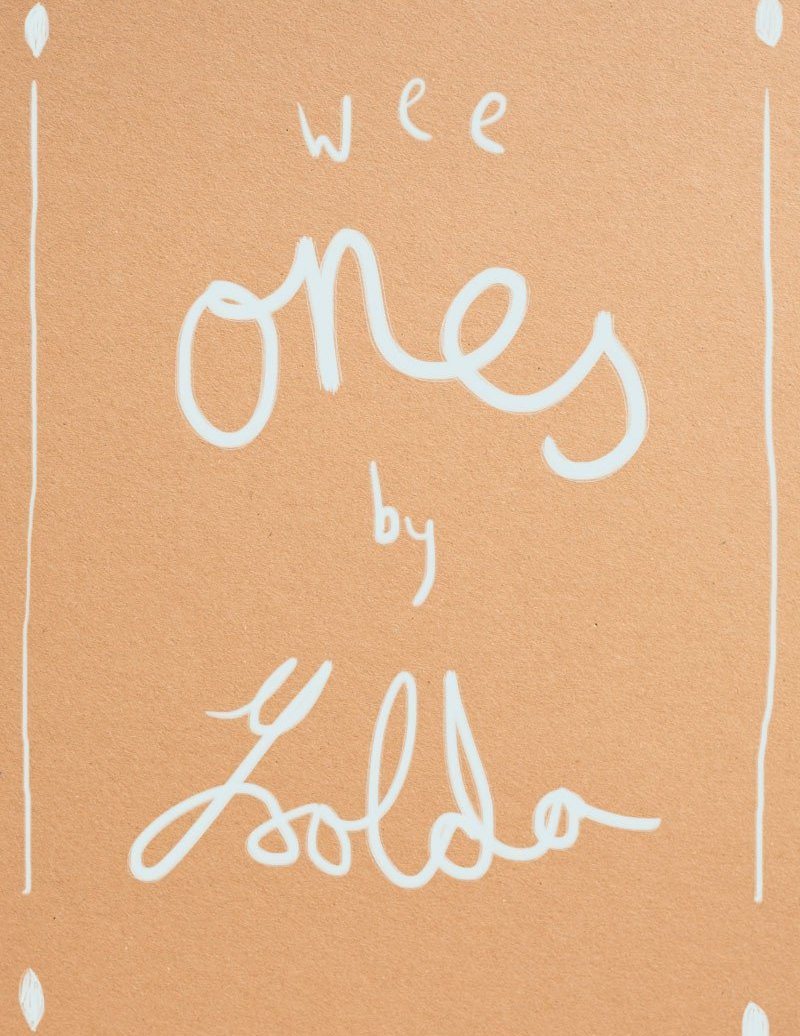 wee
ones
by
Ysolda